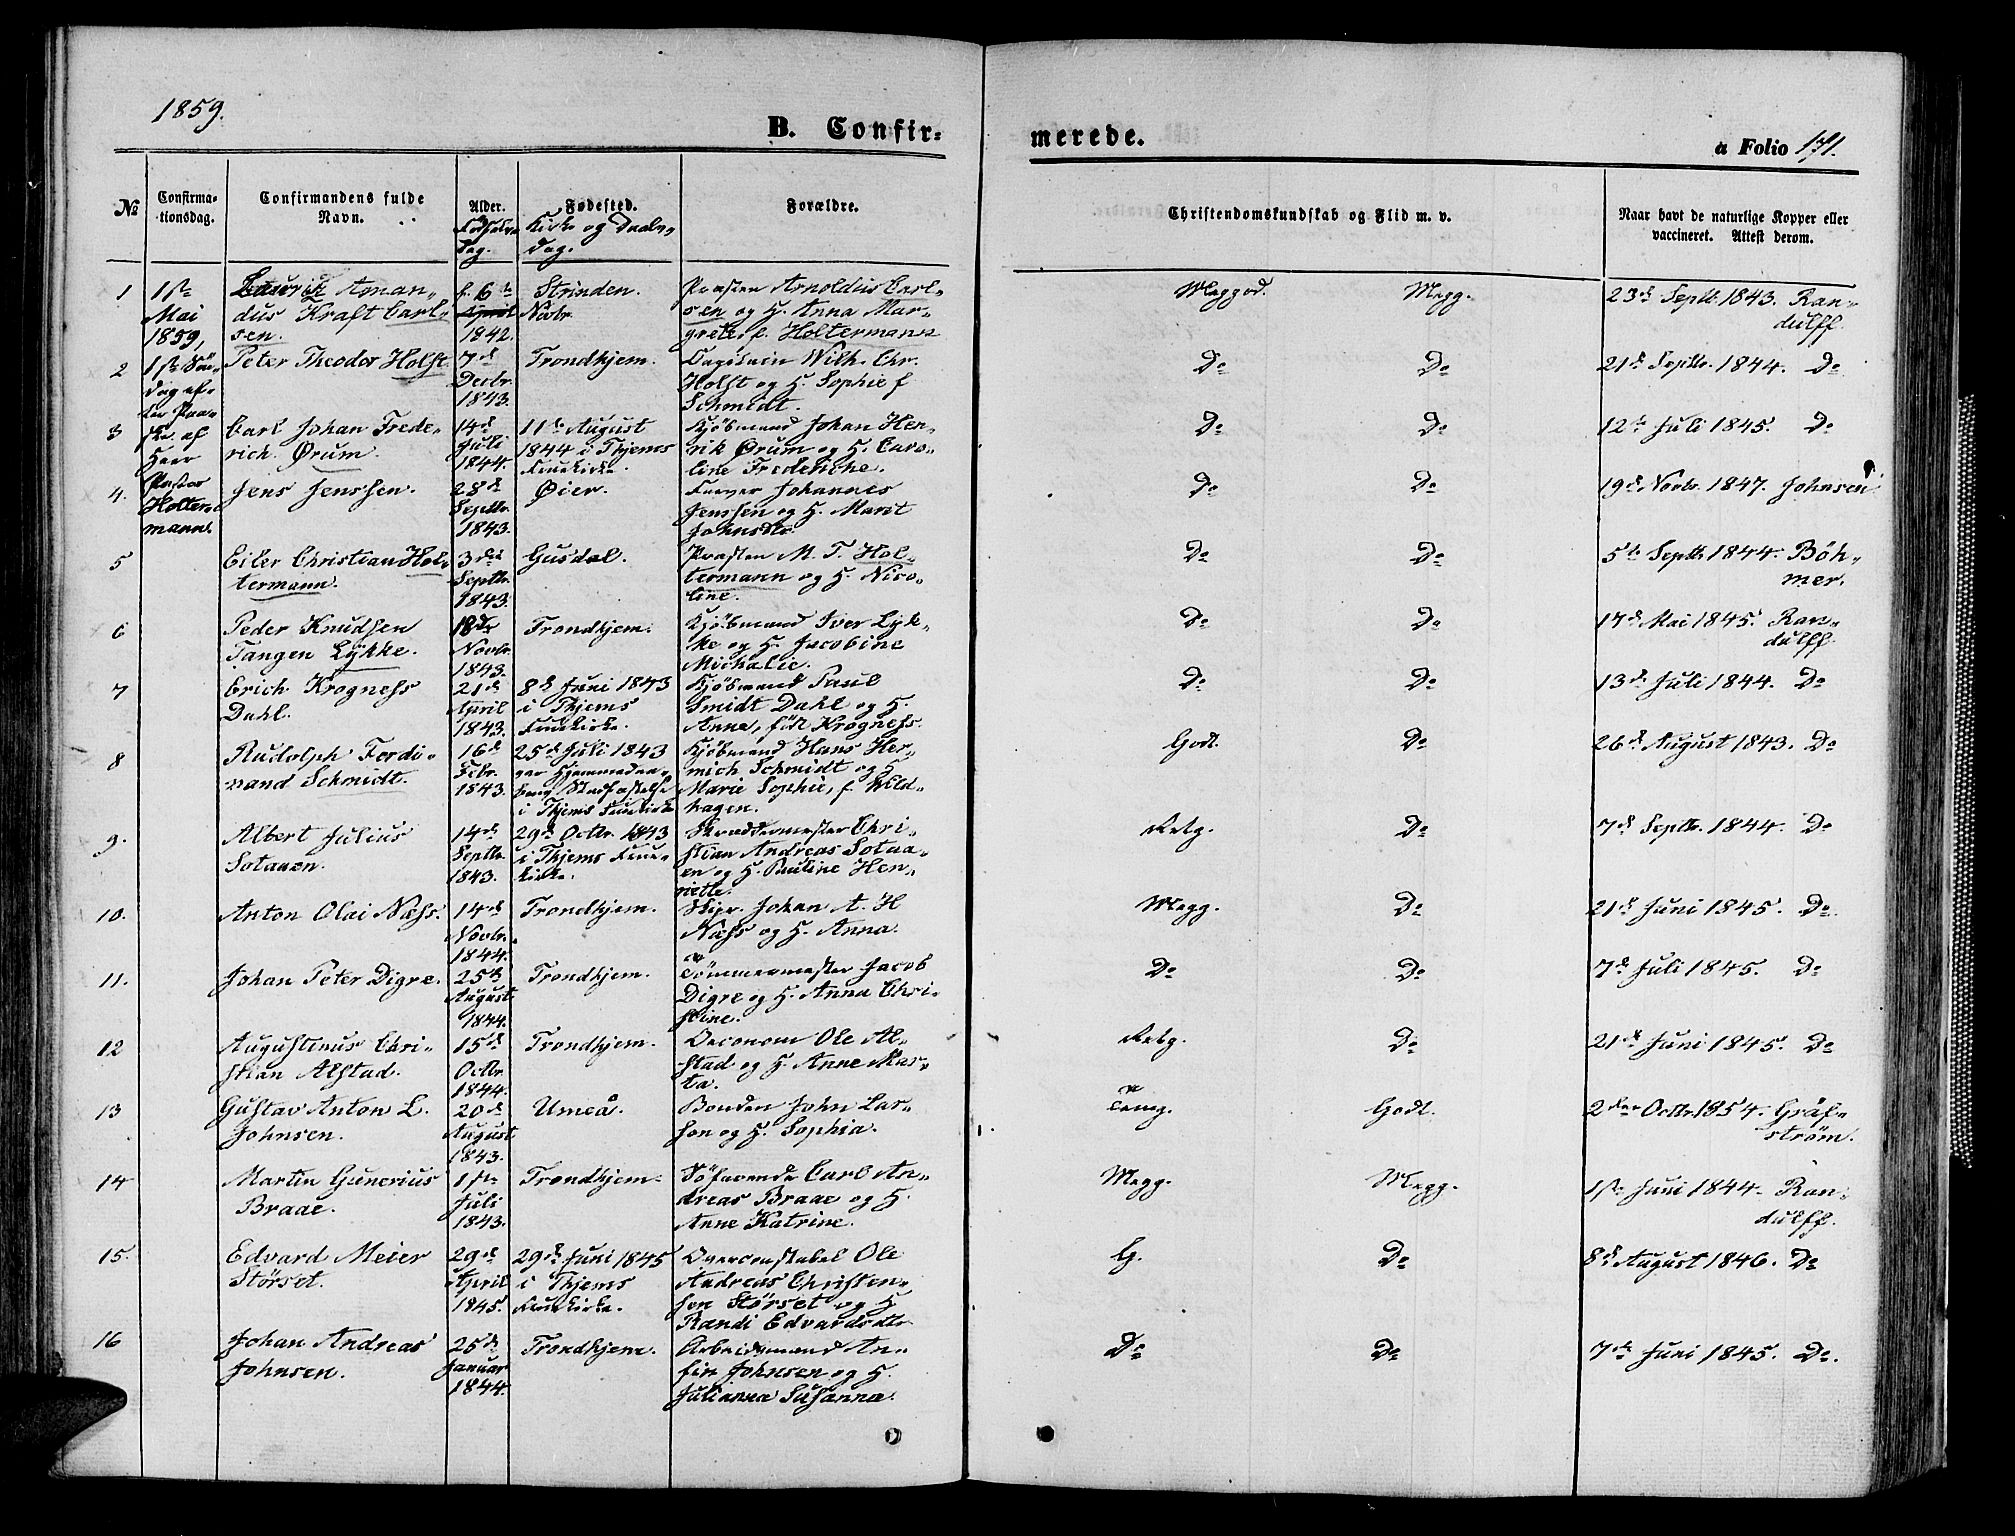 1859.
B. Confir-
merede.
a Folio 171.
No
Confirma-
tionsdag.
Confirmandens fulde
Navn.
Alder.
Fødsels-
dag.
Fødested.
Kirke og Daabs-
dag.
Forældre.
Christendomskundskab og Flid m. v.
Naar havt de naturlige Kopper eller
vaccineret. Attest derom.
1ste
Mai
1859,
1ste Søn-
dag ef-
ter Paa-
ske af
Herr
Pastor
Holter-
mann.
1
Lauritz Aman-
dus Kraft Carl-
sen.
f. 6te
Novbr
1842.
Strinden.
Præsten Arnoldus Carl-
sen og H. Anna Mar-
grete f. Holtermann
Meggod.
Megg.
23de Septb 1843. Ran-
dulff.
2
Peter Theodor Holst
7de
Decbr.
1843.
Trondhjem.
Wilh. Chr.
Holst og H. Sophie f
Schmidt.
Do
Do
21de Septbr. 1844. Do
3
Carl Johan Frede-
rich Ørum.
14de
Juli
1844.
11te August
1844 i Thjems
Fruekirke.
Kjøbmand Johan Hen-
rik Ørum og H. Caro-
line Frederiche.
Do
Do
12te Juli 1845. Do
4.
Jens Jenssen.
28de
Septbr.
1843.
Øier.
Farver Johannes
Jenssen og H. Marit
Johnsdtr.
Do
Do
19de Novbr. 1847. Johnsen
5
Eiler Christian Hol-
termann.
3die
Septbr.
1843.
Gusdal.
Præsten M. T. Hol-
termann og H. Nico-
line.
Do
Do
5te Septb. 1844. Böh-
mer.
6
Peder Knudsen
Tangen Lykke.
18de
Novbr.
1843.
Trondhjem.
Kjøbmand Iver Lyk-
ke og H. Jacobine
Michalie.
Do
Do
17de Mai 1845. Ran-
dulff.
7
Erich Krogness
Dahl.
21de
April
1843.
8de Juni 1843
i Thjems
Fruekirke.
Kjøbmand Paul
Smidt Dahl og H.
Anne, født Krogness.
Do
Do
13de Juli 1844. Do
8
Rudolph Ferdi-
nand Schmidt.
16de
Febr.
1843.
25de Juli 1843
i Thjems Fruekirke
Kjøbmand Hans Her-
mich Schmidt og H
Marie Sophie, f Wild-
hagen.
Godt.
Do
26de August 1843. Do
9.
Albert Julius
Sotaaen.
14de
Septbr.
1843.
29de Octbr. 1843
i Thjems Frue-
kirke.
Skræddermester Chri-
stian Andreas Sotaa-
en og H. Pauline Hen-
riette.
Retg.
Do
7de Septbr. 1844. Do
10.
Anton Olai Næss.
14de
Novbr.
1844.
Trondhjem.
Skipr. Johan A. H
Næss og H. Anna.
Megg.
Do
21de Juni 1845. Do.
11.
Johan Peter Digre.
25de
August
1844.
Trondhjem.
Tømmermester Jacob
Digre og H. Anna Chri-
stine.
Do
Do
7de Juli 1845. Do
12
Augustinus Chri-
stian Alstad.
15de
Octbr.
1844.
Trondhjem.
Oeconom Ole Al-
stad og H. Anne Mar-
ta.
Retg.
Do
21de Juni 1845. Do
13
Gustav Anton L.
Johnsen.
20de
August
1843.
Umeå.
Bonden John Lar-
son og H. Sophia.
Temg.
Godt.
2den Octbr. 1854. Gräf-
ström.
14
Martin Gunerius
Braae.
1ste
Juli
1843.
Trondhjem.
Søfarende Carl An-
dreas Braae og H.
Anne Katrine.
Megg.
Megg.
1ste Juni 1844. Ran-
dulff.
15.
Edvard Meier
Størset.
29de
April
1845.
29de Juni 1845
i Thjems
Fruekirke.
Overconstabel Ole
Andreas Christen-
sen Størset og H
Randi Edvardsdtr
G.
Do
8de August 1846. Do
16
Johan Andreas
Johnsen.
25de
Januar
1844.
Trondhjem.
Arbeidsmand An-
fin Johnsen og H.
Julianna Susanna.
Do
Do
7de Juni 1845. Do.